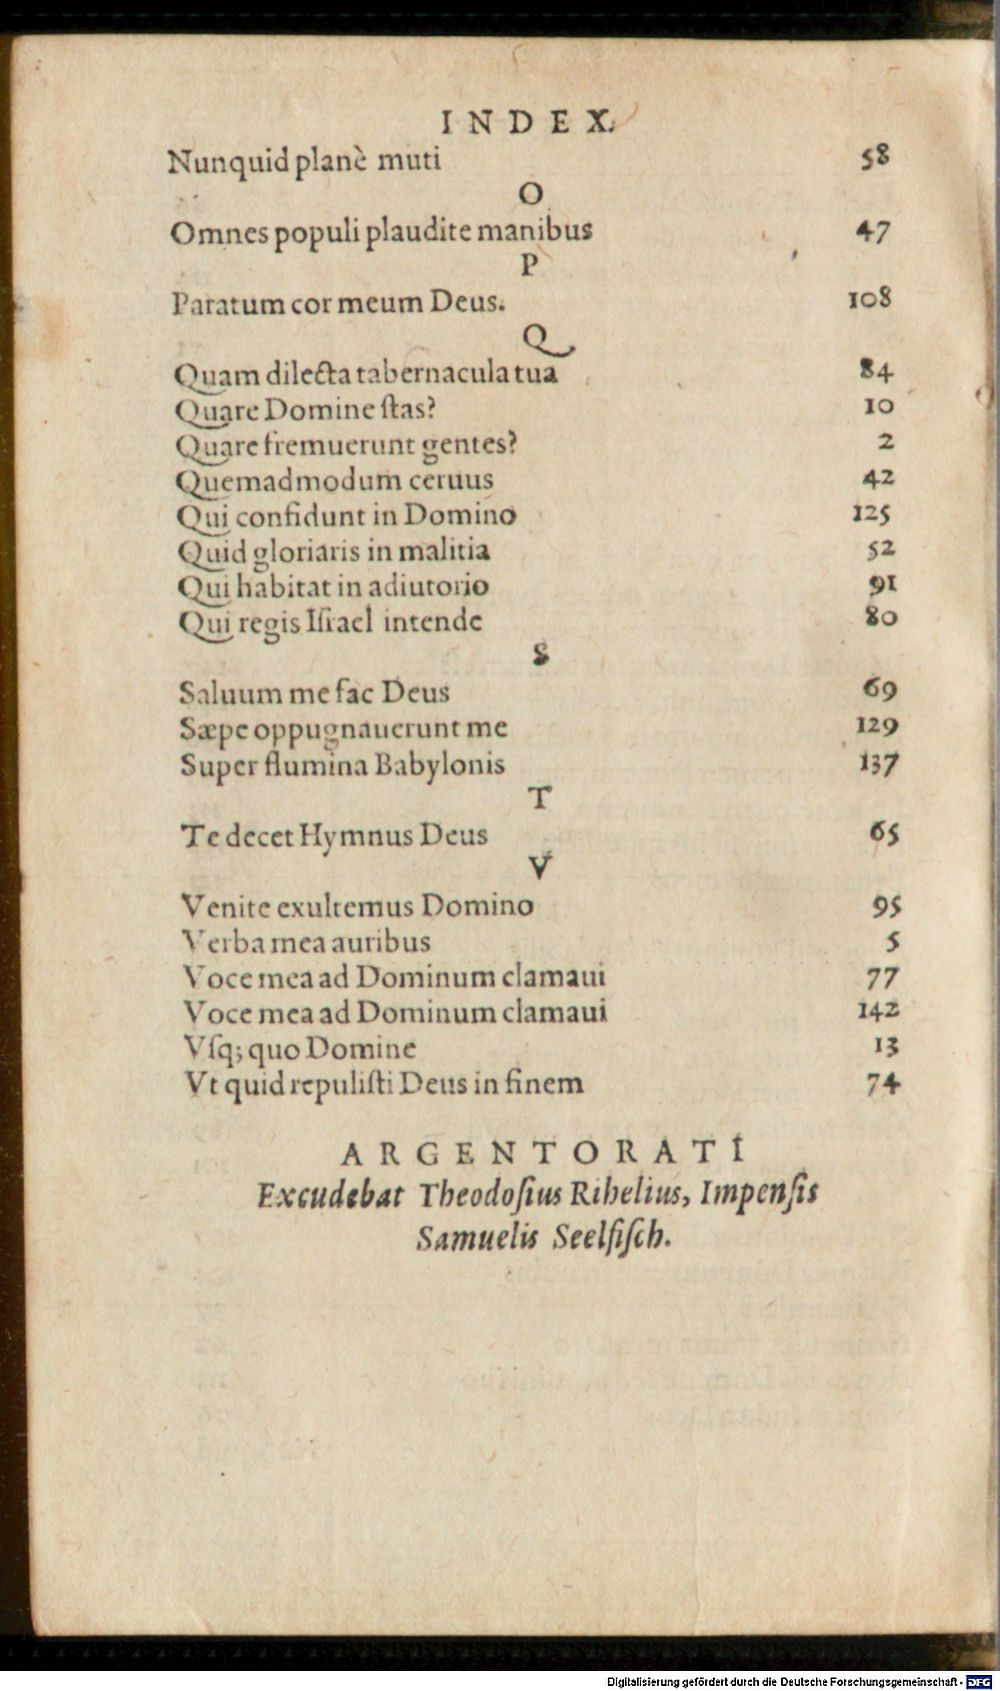 INDEX.
Nunquid planè muti 58
O
Omnes populi plaudite manibus 47
P
Paratum cor meum Deus. 108
Q
Quam dilecta tabernacula tua 84
Quare Domine ſtas? 10
Quare fremuerunt gentes? 2
Quemadmodum ceruus 42
Qui confidunt in Domino 125
Quid gloriaris in malitia 52
Qui habitat in adiutorio 91
Qui regis Iſrael intende 80
S
Saluum me fac Deus 69
Sæpe oppugnauerunt me 129
Super flumina Babylonis 137
T
Te decet Hymnus Deus 65
V
Venite exultemus Domino 95
Verba mea auribus 5
Voce mea ad Dominum clamaui 77
Voce mea ad Dominum clamaui 142
Vſq; quo Domine 13
Vt quid repuliſti Deus in finem 74
ARGENTORATI
Excudebat Theodoſius Rihelius, Impenſis
Samuelis Seelfiſch.
Digitalisierung gefördert durch die Deutsche Forschungsgemeinschaft - DFG